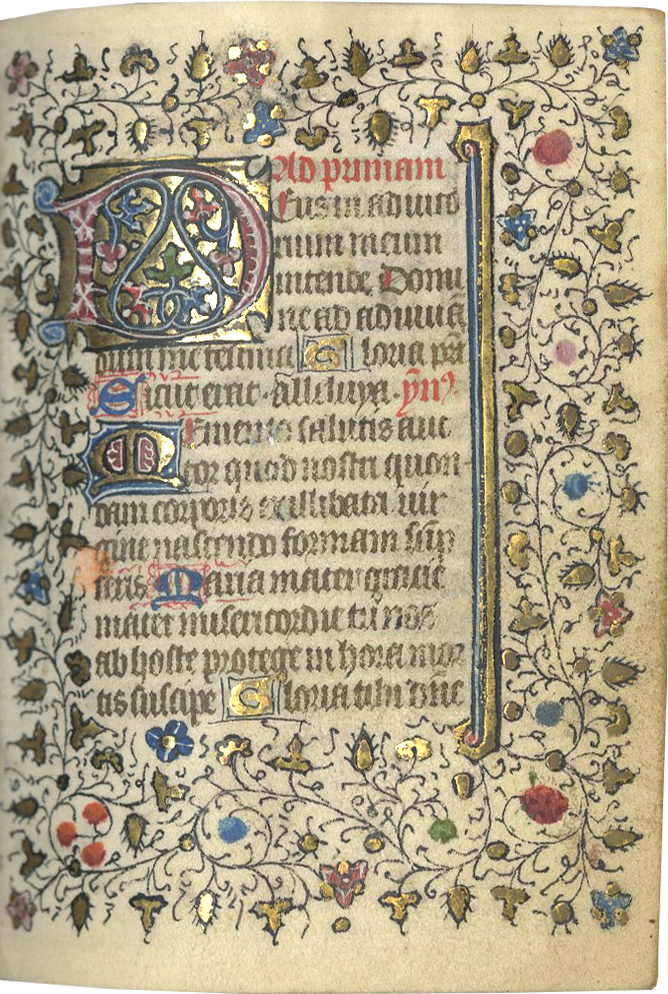 Ad primam
Deus in adiuto
rium meum
intende. Domi
ne ad adiuuā
dum me festina Gloria pa
Sicut erat. alleluya. ẏmꝰ.
Memento salutis auc
tor quod nostri quon
dam corporis ex illibata uir
gine nascendo formam sūp
seris Maria mater gracie
mater misericordie tu nos
ab hoste protege in hora mor
tis suscipe Gloria tibi dn̄e